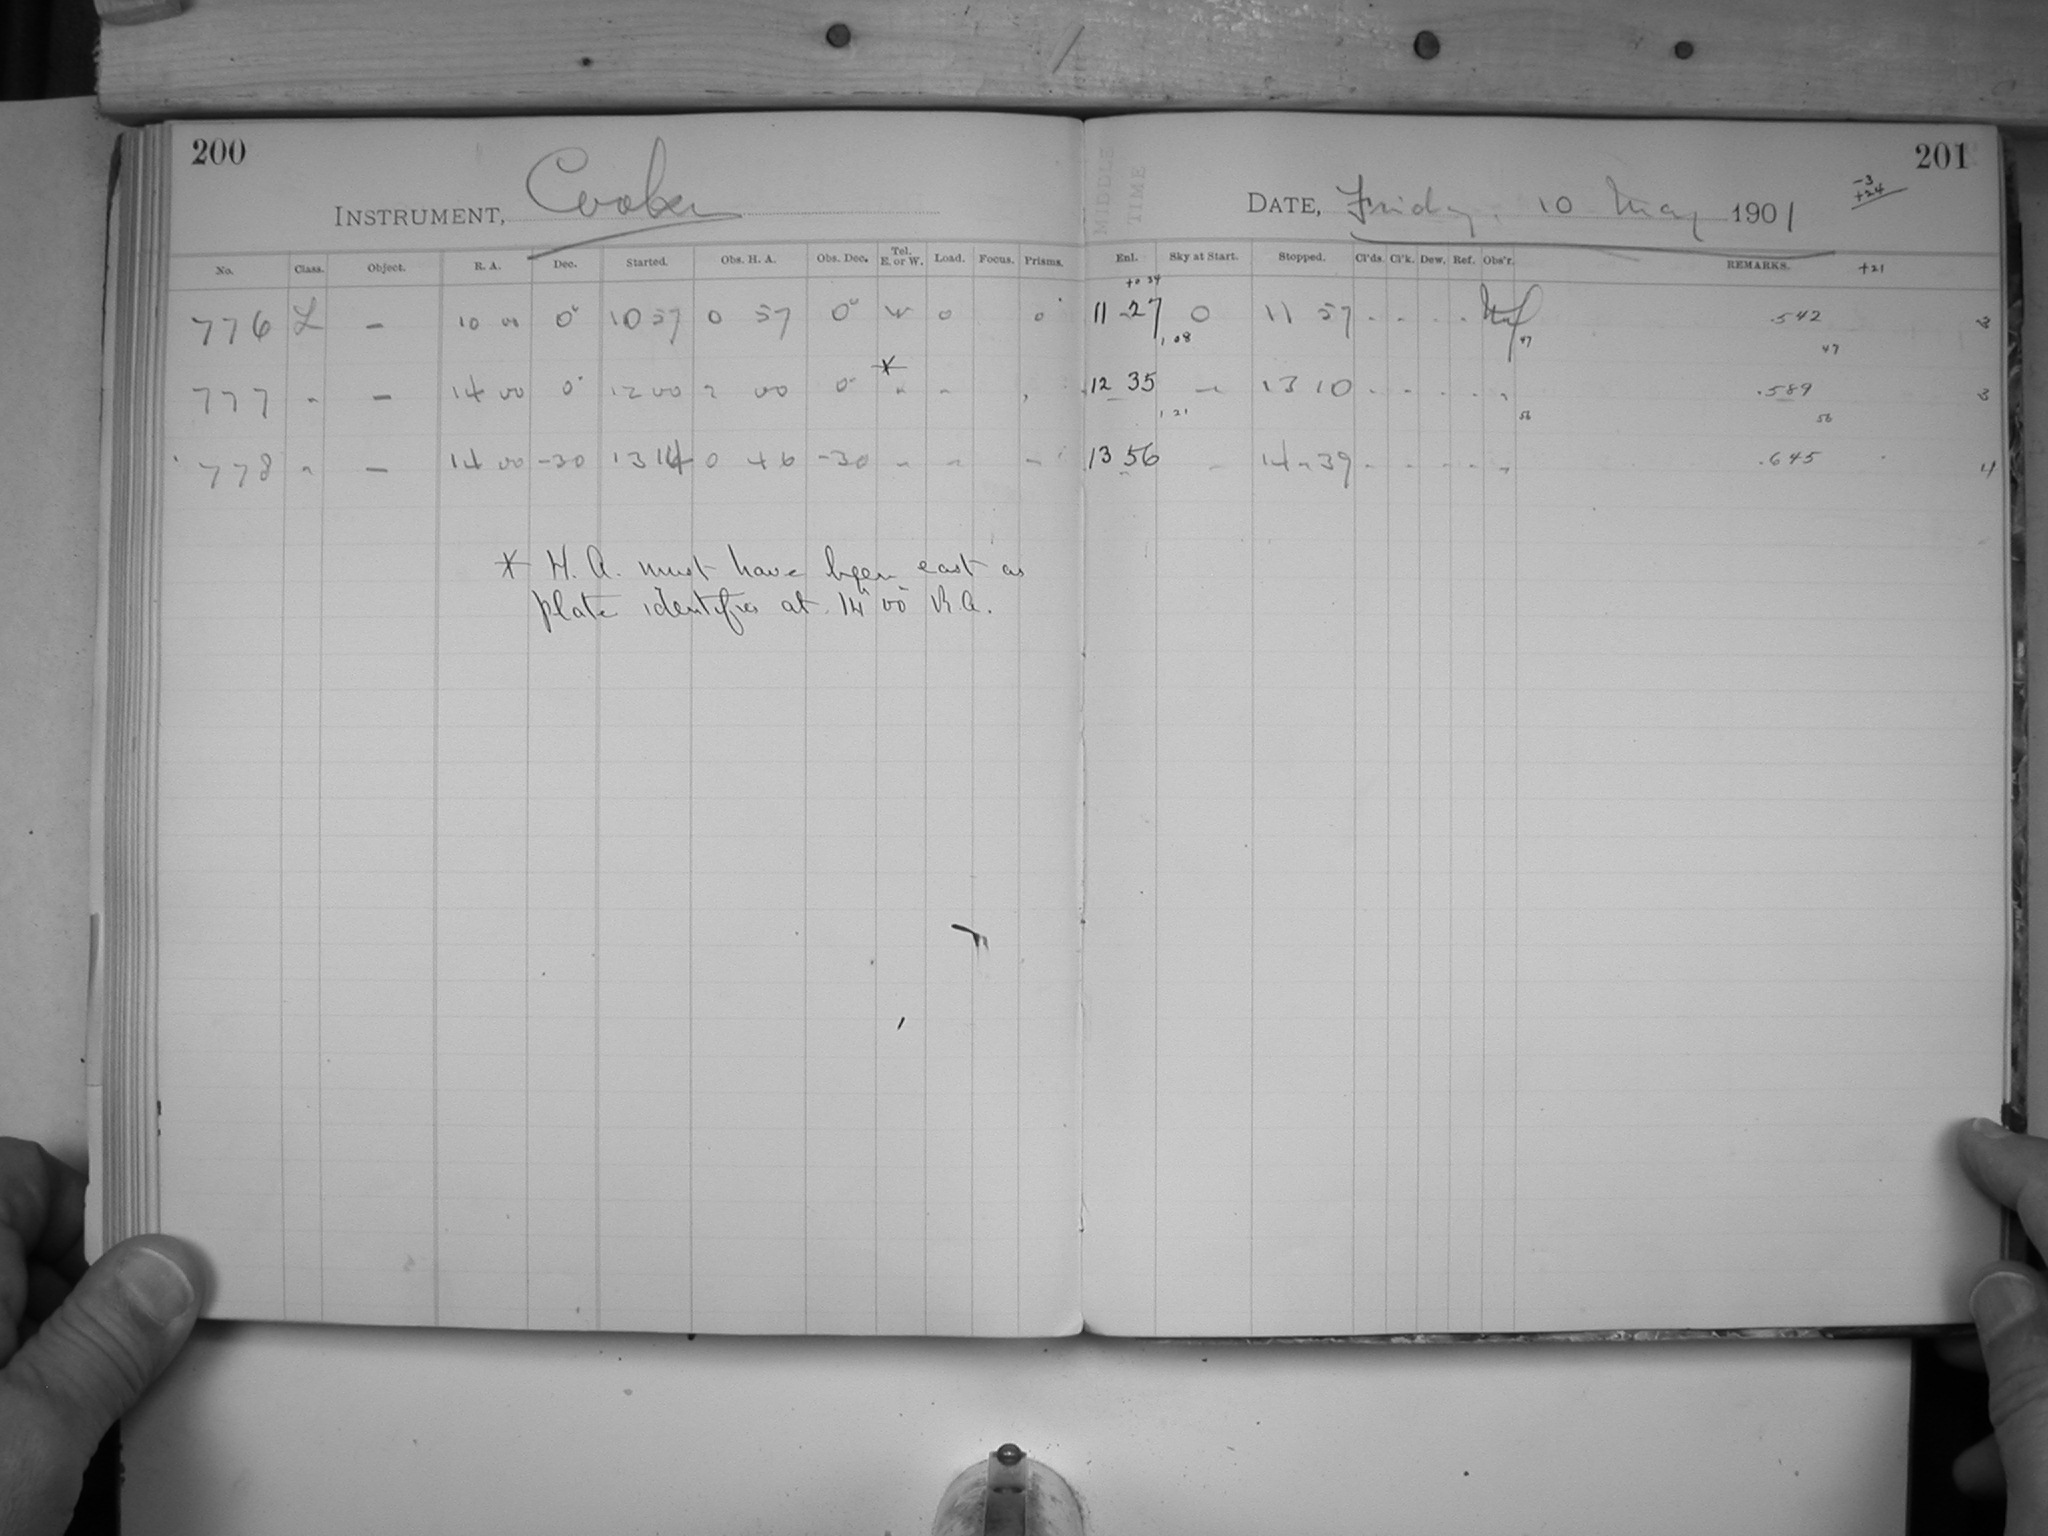 200
INSTRUMENT, Cooke
No. Class. Object. R. A. Dec. Started. Obs. H. A. Obs. Dec. Tel. E. or W. Load. Focus. Prisms.
776 L - 10 00 0° 10 57 0 57 0° W 0 0
777 " - 14 00 0° 12 00 2 00 0° * " "
778 " - 14 00 -30 13 14 0 46 -30 " " "
* H. A. must have been east as
plate identifies at 14h 00m R.A.
201
MIDDLE TIME
DATE, Friday, 10 May 1901
-3
+24
+21
Enl. Sky at Start. Stopped. Cl'ds. Cl'k. Dew. Ref. Obs'r. REMARKS.
+0 34
11 27 0 11 57 .542 3
1 08 47 47
12 35 " 13 10 .589 3
1 21 56 56
13 56 " 14 39 .645 4